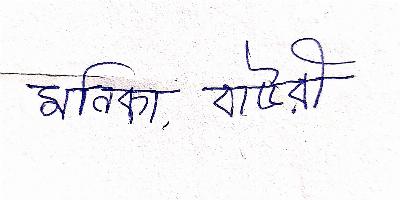 মনিকা, বাউরী